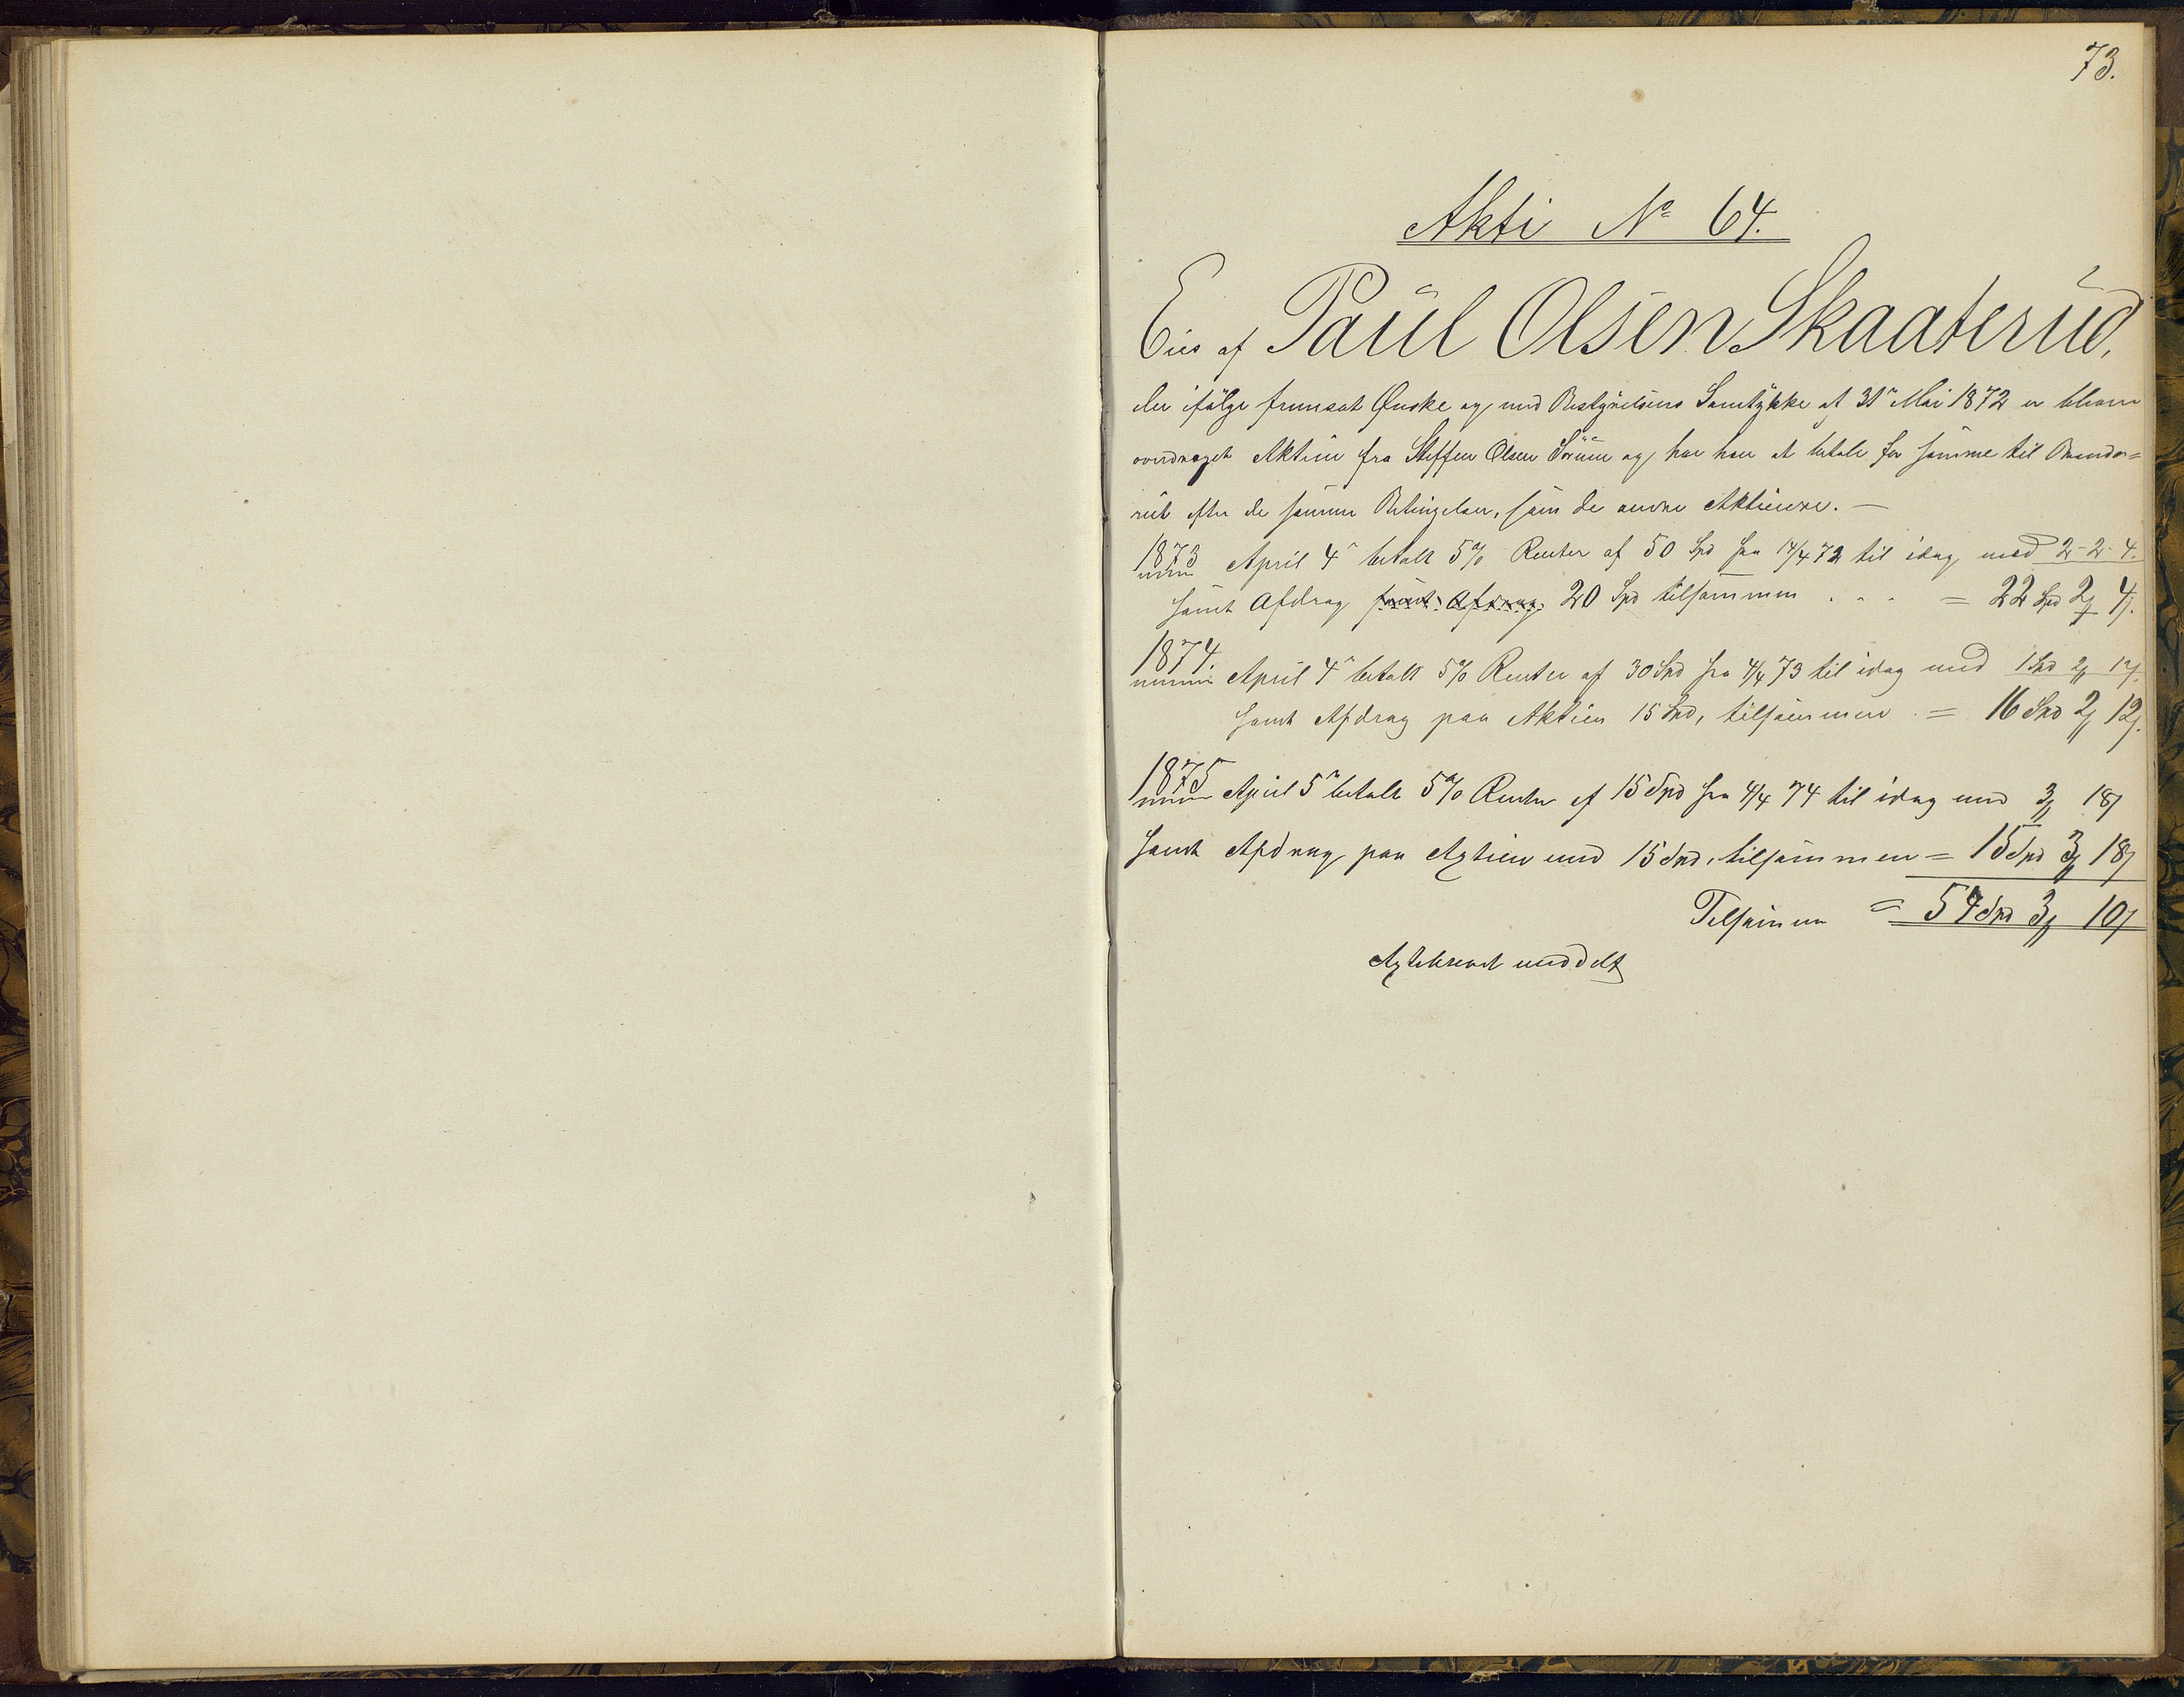 73.
Akti No 64.
Eies af Paul Olsen Skaaterud,
der ifølge fremsat Ønske og med Bestyrelsens Samtykke af 31te Mai 1872 er bleven
overdraget Aktien fra Steffen Olsen Sørum og har han at betale for samme til
efter de samme Betingelser, som de andre Aktieeiere. —
1873 April 4de betalt 5% Renter af 50 Spd fra 14/4 72 til idag med 2-2-4.
samt Afdrag samt Afdrag 20 Spd tilsammen . . . = 22 Spd 2 4.
1874. April 4de betalt 5% Renter af 30 Spd fra 4/4 73 til idag med 1 Spd 2 12.
samt Afdrag paa Aktien 15 Spd, tilsammen . = 16 Spd 2 12.
1875 April 5te betalt 5% Renter af 15 Spd fra 4/4 74 til idag med 3 18
samt Afdrag paa Actien med 15 Spd, tilsammen = 15 Spd 3 18
Tilsammen = 54 Spd 3 10
Actiebrevet meddelt